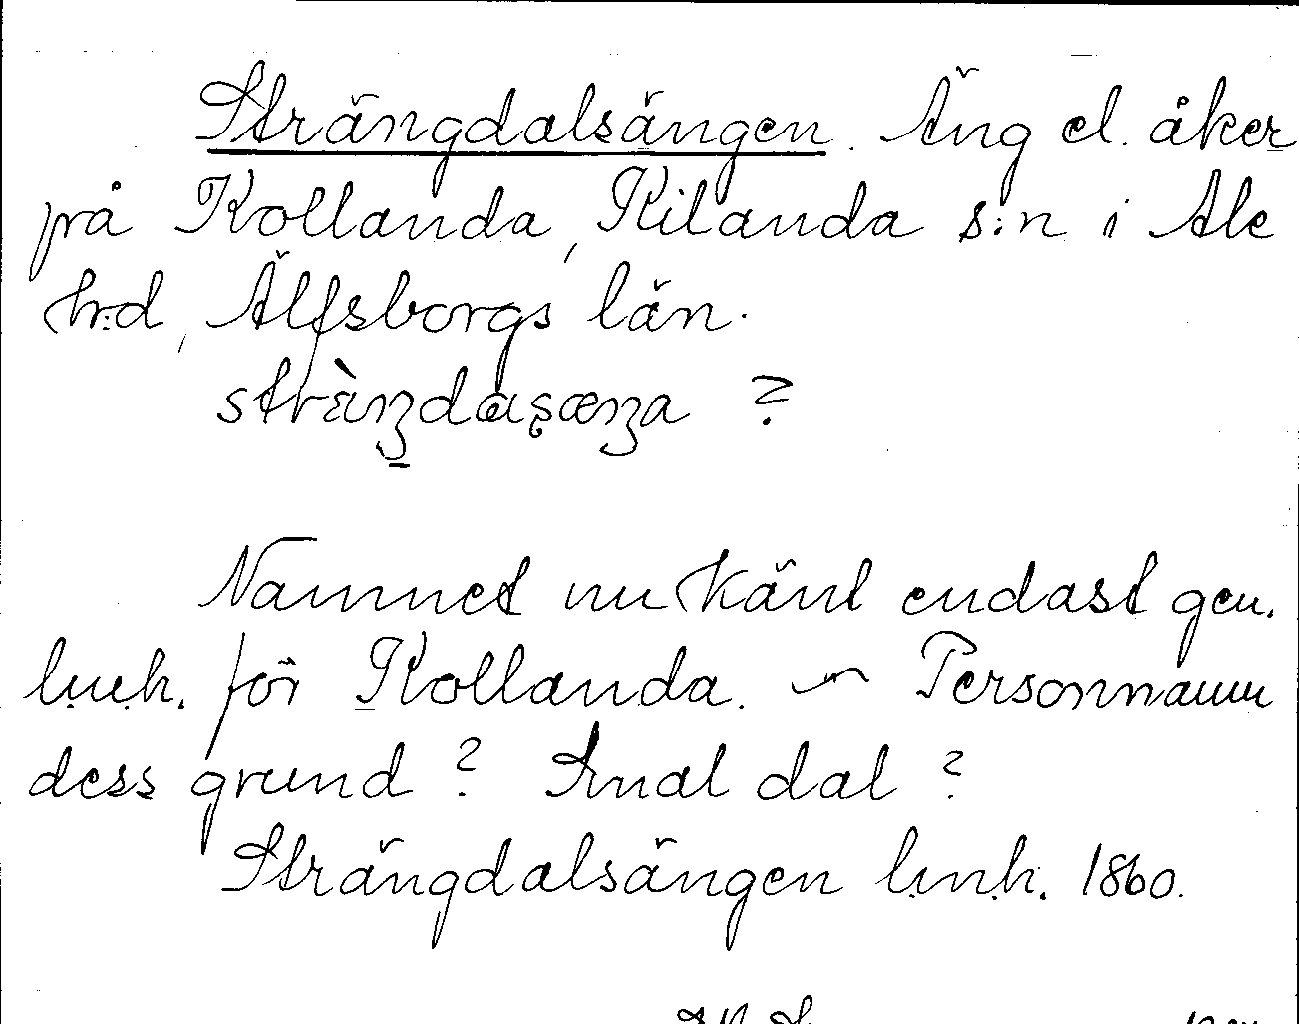 Strängdalsängen. Äng el. åker
på Kollanda, Kilanda s:n i Ale
h:d, Älfsborgs län.
?
Namnet nu känt endast gen.
l.u.h. för Kollanda. ~ Personnamn
dess grund? Smal dal?
Strängdalsängen l.u.h. 1860.